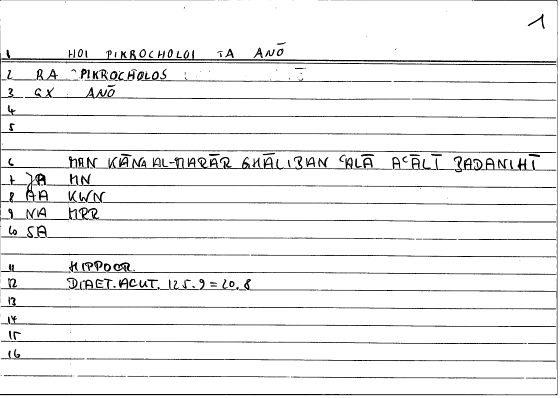 1
1 HOI PIKROCHOLOI TA ANŌ
2 RA PIKROCHOLOS
3 GX ANŌ
4
5
6 MAN KĀNA AL-MARĀR GHĀLIBAN ʿALĀ AʿĀLĪ BADANIHĪ
7 JA MN
8 AA KWN
9 NA MRR
10 SA
11 HIPPOCR.
12 DIAET. ACUT. 125.9 = 20.8
13
14
15
16